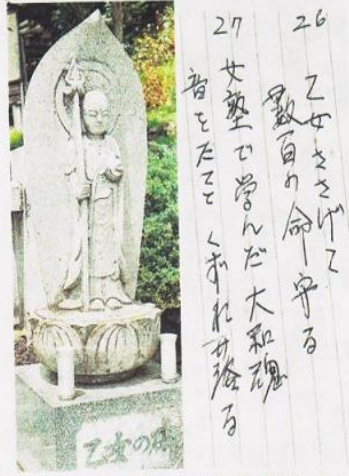 26
乙女ささげて
数百の命守る
27
女塾で学んだ大和魂
音をたてて くずれ
乙女の